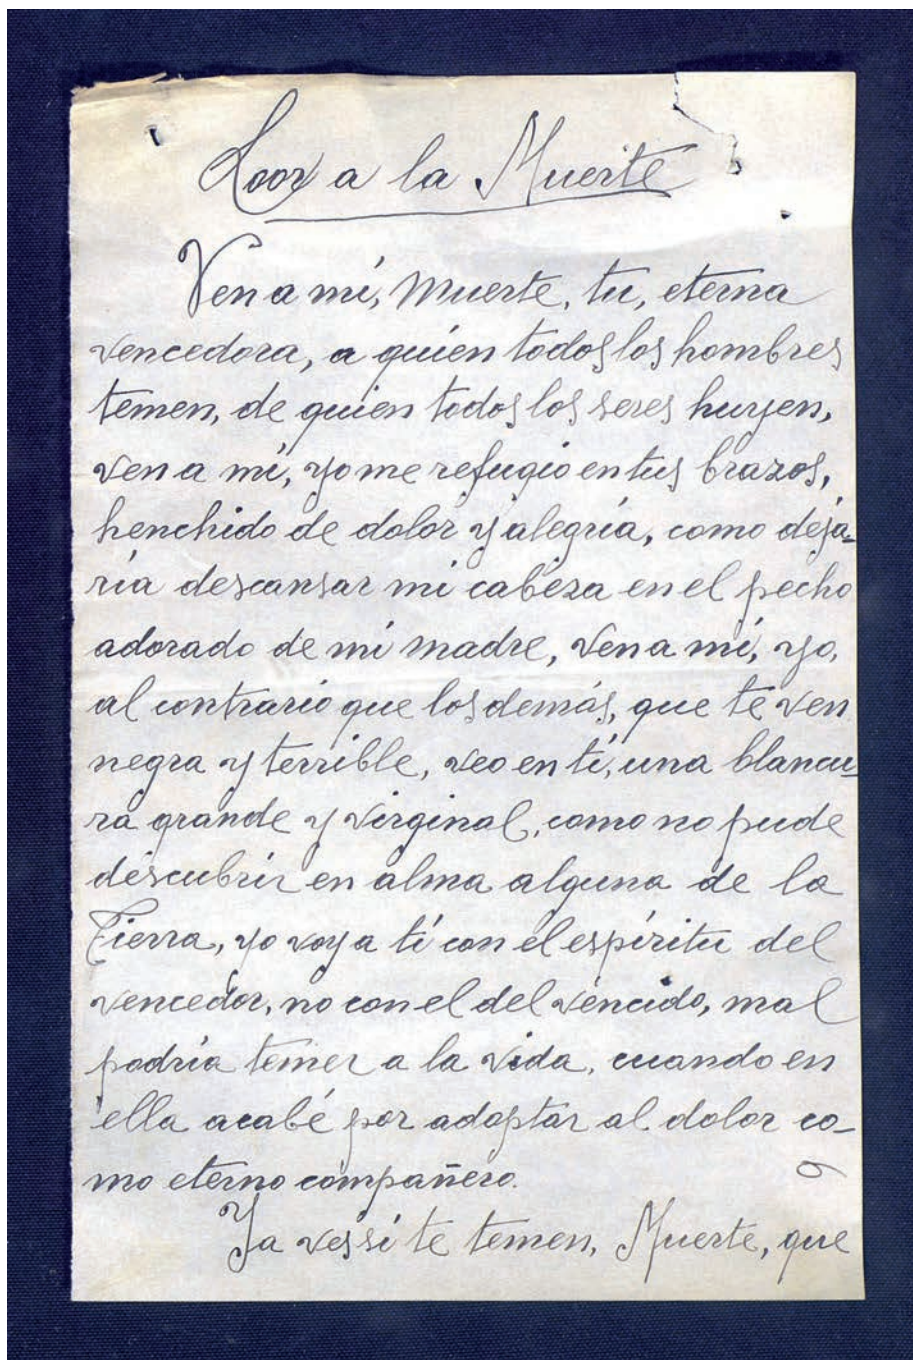 Loor a la Muerte
Ven a mí, Muerte, tu, eterna
vencedora, a quién todos los hombres
temen, de quien todos los seres huyen,
ven a mí, yo me refugio en tus brazos,
henchido de dolor y alegría, como deja-
ría descansar mi cabeza en el pecho
adorado de mi madre, Ven a mí, yo,
al contrario que los demás, que te ven
negra y terrible, veo en tí, una blancu-
ra grande y virginal, como no pude
descubrir en alma alguna de la
Tierra, yo voy a tí con el espíritu del
vencedor, no con el del vencido, mal
podría temer a la vida, cuando en
ella acabé por adoptar al dolor co-
mo eterno compañero.
Ya ves si te temen, Muerte, que